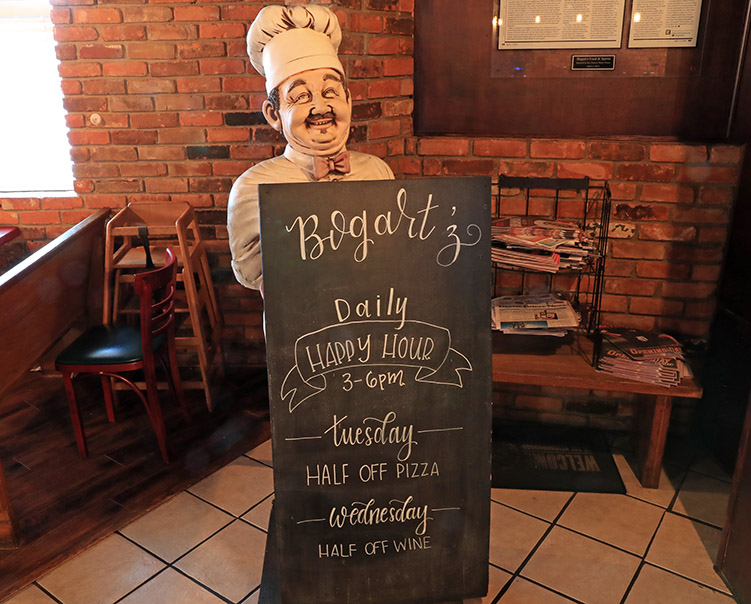 Bogart'z
Daily
HAPPY HOUR
3-6pm
Tuesday
HALF OFF PIZZA
Wednesday
HALF OFF WINE
WELCOME